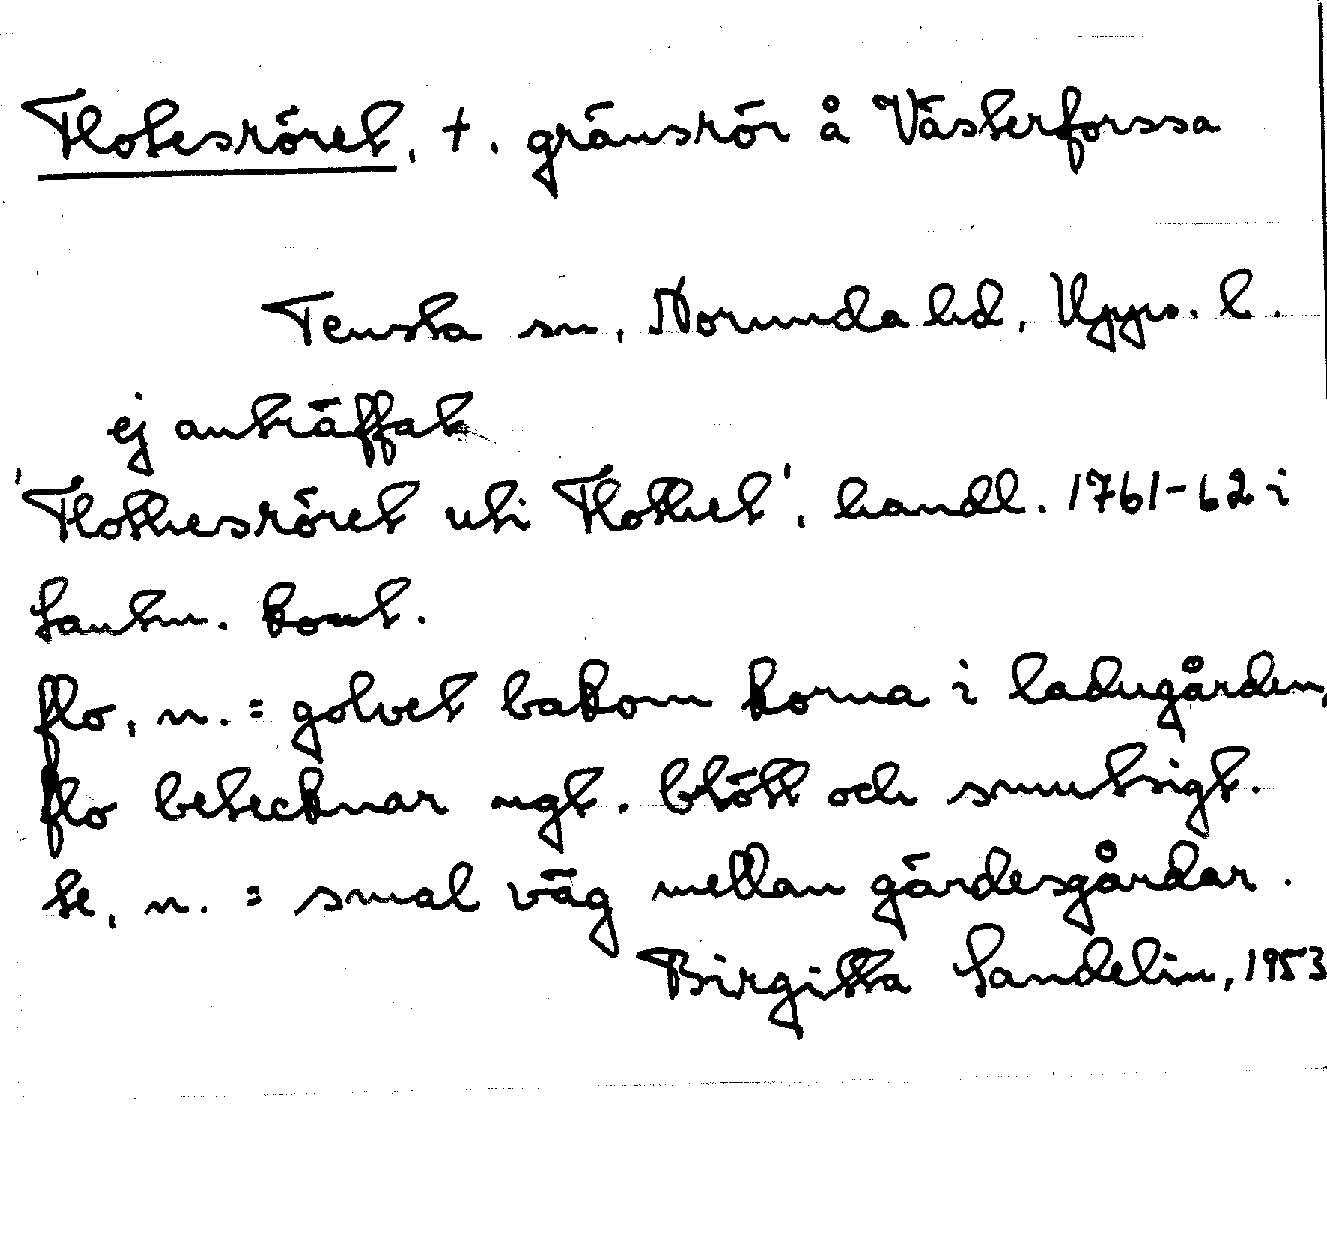 Flotesröret, †. gränsrör å Västerforssa
Tensta sn, Norunda hd, Upps. l.
ej anträffat
'Flothesröret uti Flothet', handl. 1761-62 i
Lantm. kont.
flo, n. = golvet bakom korna i ladugården,
flo betecknar ngt. blött och smutsigt.
te, n. = smal väg mellan gärdesgårdar.
Birgitta Sandelin, 1953